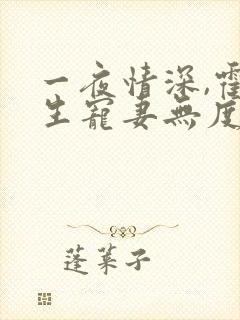 一夜情深,霍
生寵妻無度
蓬萊子